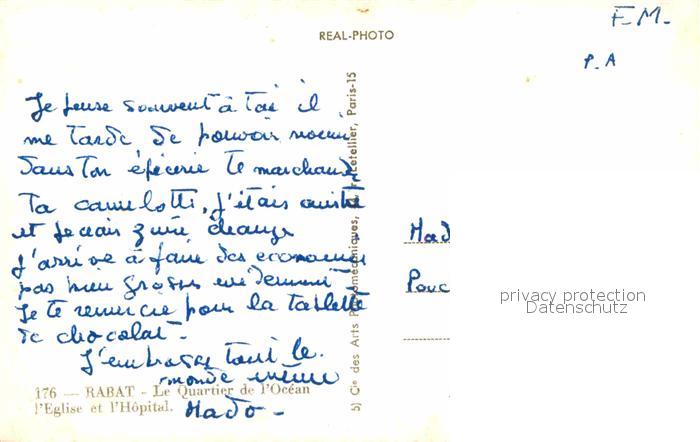 F.M.
REAL-PHOTO
P.A
Je pense souvent à toi il
me tarde de pouvoir
dans ton épicerie te marchander
Ta camelotti, j'étais
et je change
J'arrive à faire des economies
pas bien grosses evidemment
Je te remercie pour la tablette
de chocolat.
J'embrasse tout le
monde
Mado -
176 — RABAT - Le Quartier de l'Océan
l'Eglise et l'Hôpital.
5) Cie des Arts Photomécaniques, Letellier, Paris-15
Mad
Pouc
privacy protection
Datenschutz